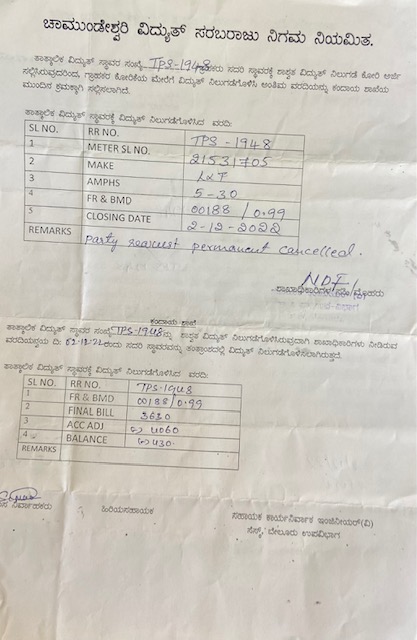 ಚಾಮುಂಡೇಶ್ವರಿ ವಿದ್ಯುತ್ ಸರಬರಾಜು ನಿಗಮ ನಿಯಮಿತ.
ತಾತ್ಕಾಲಿಕ ವಿದ್ಯುತ್ ಸ್ಥಾವರ ಸಂಖ್ಯೆ TPS-1948 ಗ್ರಾಹಕರು ಸದರಿ ಸ್ಥಾವರಕ್ಕೆ ಶಾಶ್ವತ ವಿದ್ಯುತ್ ನಿಲುಗಡೆ ಕೋರಿ ಅರ್ಜಿ
ಸಲ್ಲಿಸಿರುವುದರಿಂದ, ಗ್ರಾಹಕರ ಕೋರಿಕೆಯ ಮೇರೆಗೆ ವಿದ್ಯುತ್ ನಿಲುಗಡೆಗೊಳಿಸಿ ಅಂತಿಮ ವರದಿಯನ್ನು ಕಂದಾಯ ಶಾಖೆಯ
ಮುಂದಿನ ಕ್ರಮಕ್ಕಾಗಿ ಸಲ್ಲಿಸಲಾಗಿದೆ.
ತಾತ್ಕಾಲಿಕ ವಿದ್ಯುತ್ ಸ್ಥಾವರಕ್ಕೆ ವಿದ್ಯುತ್ ನಿಲುಗಡೆಗೊಳಿಸಿದ ವರದಿ:
SL NO. RR NO. TPS - 1948
1 METER SL NO. 21531705
2 MAKE L&T
3 AMPHS 5-30
4 FR & BMD 00188 / 0.99
5 CLOSING DATE 2-12-2022
REMARKS party request permanent cancelled.
ಕಂದಾಯ ಶಾಖೆ
ತಾತ್ಕಾಲಿಕ ವಿದ್ಯುತ್ ಸ್ಥಾವರ ಸಂಖ್ಯೆ TPS-1948 ನ್ನು ಶಾಶ್ವತ ವಿದ್ಯುತ್ ನಿಲುಗಡೆಗೊಳಿಸಿರುವುದಾಗಿ ಶಾಖಾಧಿಕಾರಿಗಳು ನೀಡಿರುವ
ವರದಿಯನ್ವಯ ದಿ: 02-12-22 ರಂದು ಸದರಿ ಸ್ಥಾವರವನ್ನು ತಂತ್ರಾಂಶದಲ್ಲಿ ವಿದ್ಯುತ್ ನಿಲುಗಡೆಗೊಳಿಸಲಾಗಿರುತ್ತದೆ.
ತಾತ್ಕಾಲಿಕ ವಿದ್ಯುತ್ ಸ್ಥಾವರಕ್ಕೆ ವಿದ್ಯುತ್ ನಿಲುಗಡೆಗೊಳಿಸಿದ ವರದಿ:
SL NO. RR NO. TPS-1948
1 FR & BMD 00188/0.99
2 FINAL BILL 3630
3 ACC ADJ 4060
4 BALANCE 430.
REMARKS
ನಿರ್ವಾಹಕರು ಹಿರಿಯಸಹಾಯಕ ಸಹಾಯಕ ಕಾರ್ಯನಿರ್ವಾಹಕ ಇಂಜಿನಿಯರ್(ವಿ)
ಸೆಸ್ಕ್, ಬೇಲೂರು ಉಪವಿಭಾಗ